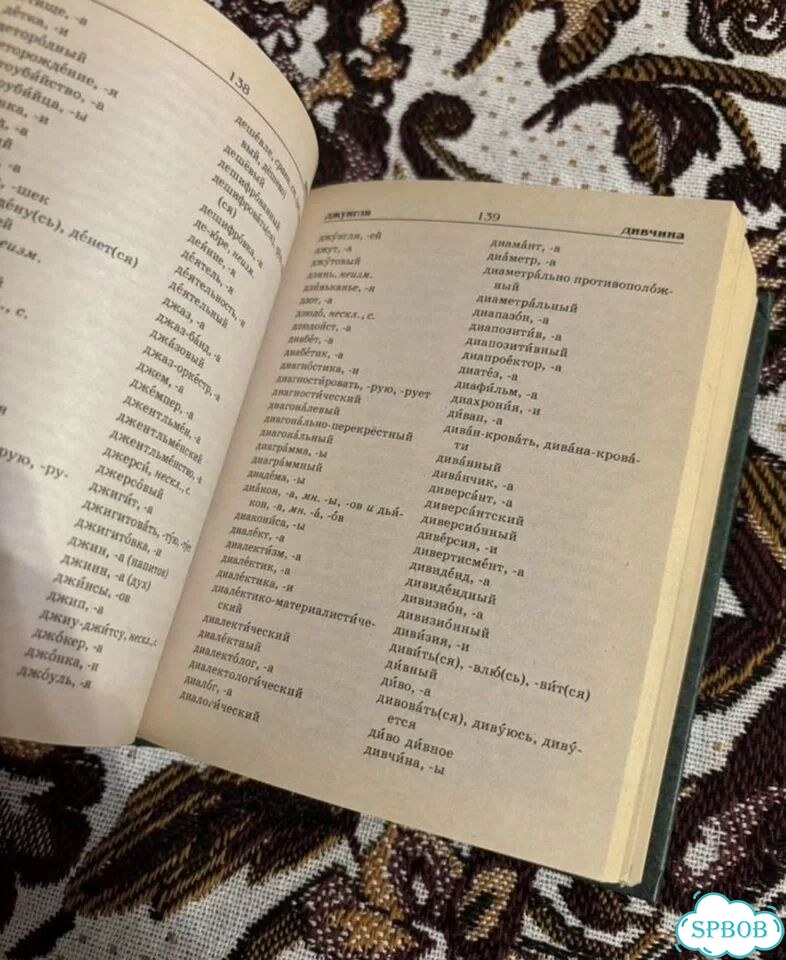 -ище, -а
детка, -и
138
-шек
дену(сь), денет(ся)
неизм.
, с.
дешёвый
дешифрованный
(ся)
дешифровка, -а
де-юре, неизм.
деяние, -а
деятель, -я
деятельность, -и
деятельный
джаз, -а
джаз-ба́нд, -а
джа́зовый
джаз-орке́стр, -а
джем, -а
дже́мпер, -а
джентльме́н, -а
джентльме́нский
джентльме́нство, -а
джерси́, нескл., с.
джерсо́вый
джиги́т, -а
джигитова́ть, -ту́ю,
джигито́вка, -и
джин, -а (напиток)
джинн, -а (дух)
джи́нсы, -ов
джип, -а
джиу-джи́тсу, нескл., с.
джо́кер, -а
джо́нка, -и
джо́уль, -я
джунгли 139 дивчина
джу́нгли, -ей
джут, -а
джу́товый
дзинь, неизм.
дзи́ньканье, -я
дзот, -а
дзюдо́, нескл., с.
дзюдои́ст, -а
диабе́т, -а
диабе́тик, -а
диагно́стика, -и
диагности́ровать, -рую, -рует
диагности́ческий
диагона́левый
диагона́льно-перекрёстный
диагона́льный
диагра́мма, -ы
диагра́ммный
диаде́ма, -ы
диа́кон, -а, мн. -ы, -ов и дья́-
кон, -а, мн. -а́, -о́в
диакони́са, -ы
диале́кт, -а
диалекти́зм, -а
диале́ктик, -а
диале́ктика, -и
диале́ктико-материалисти́че-
ский
диалекти́ческий
диале́ктный
диалекто́лог, -а
диалектологи́ческий
диало́г, -а
диалоги́ческий
диама́нт, -а
диа́метр, -а
диаметра́льно противополо́ж-
ный
диаметра́льный
диапазо́н, -а
диапозити́в, -а
диапозити́вный
диапрое́ктор, -а
диате́з, -а
диафи́льм, -а
диахрони́я, -и
ди́ван, -а
дива́н-крова́ть, дива́на-крова́-
ти
дива́нный
дива́нчик, -а
диверса́нт, -а
диверса́нтский
диверсио́нный
диве́рсия, -и
дивертисме́нт, -а
дивиде́нд, -а
дивиде́ндный
дивизио́н, -а
дивизио́нный
диви́зия, -и
диви́ть(ся), -влю́(сь), -ви́т(ся)
ди́вный
ди́во, -а
дивова́ть(ся), диву́юсь, диву́-
ется
ди́во ди́вное
дивчи́на, -ы
SPBOB